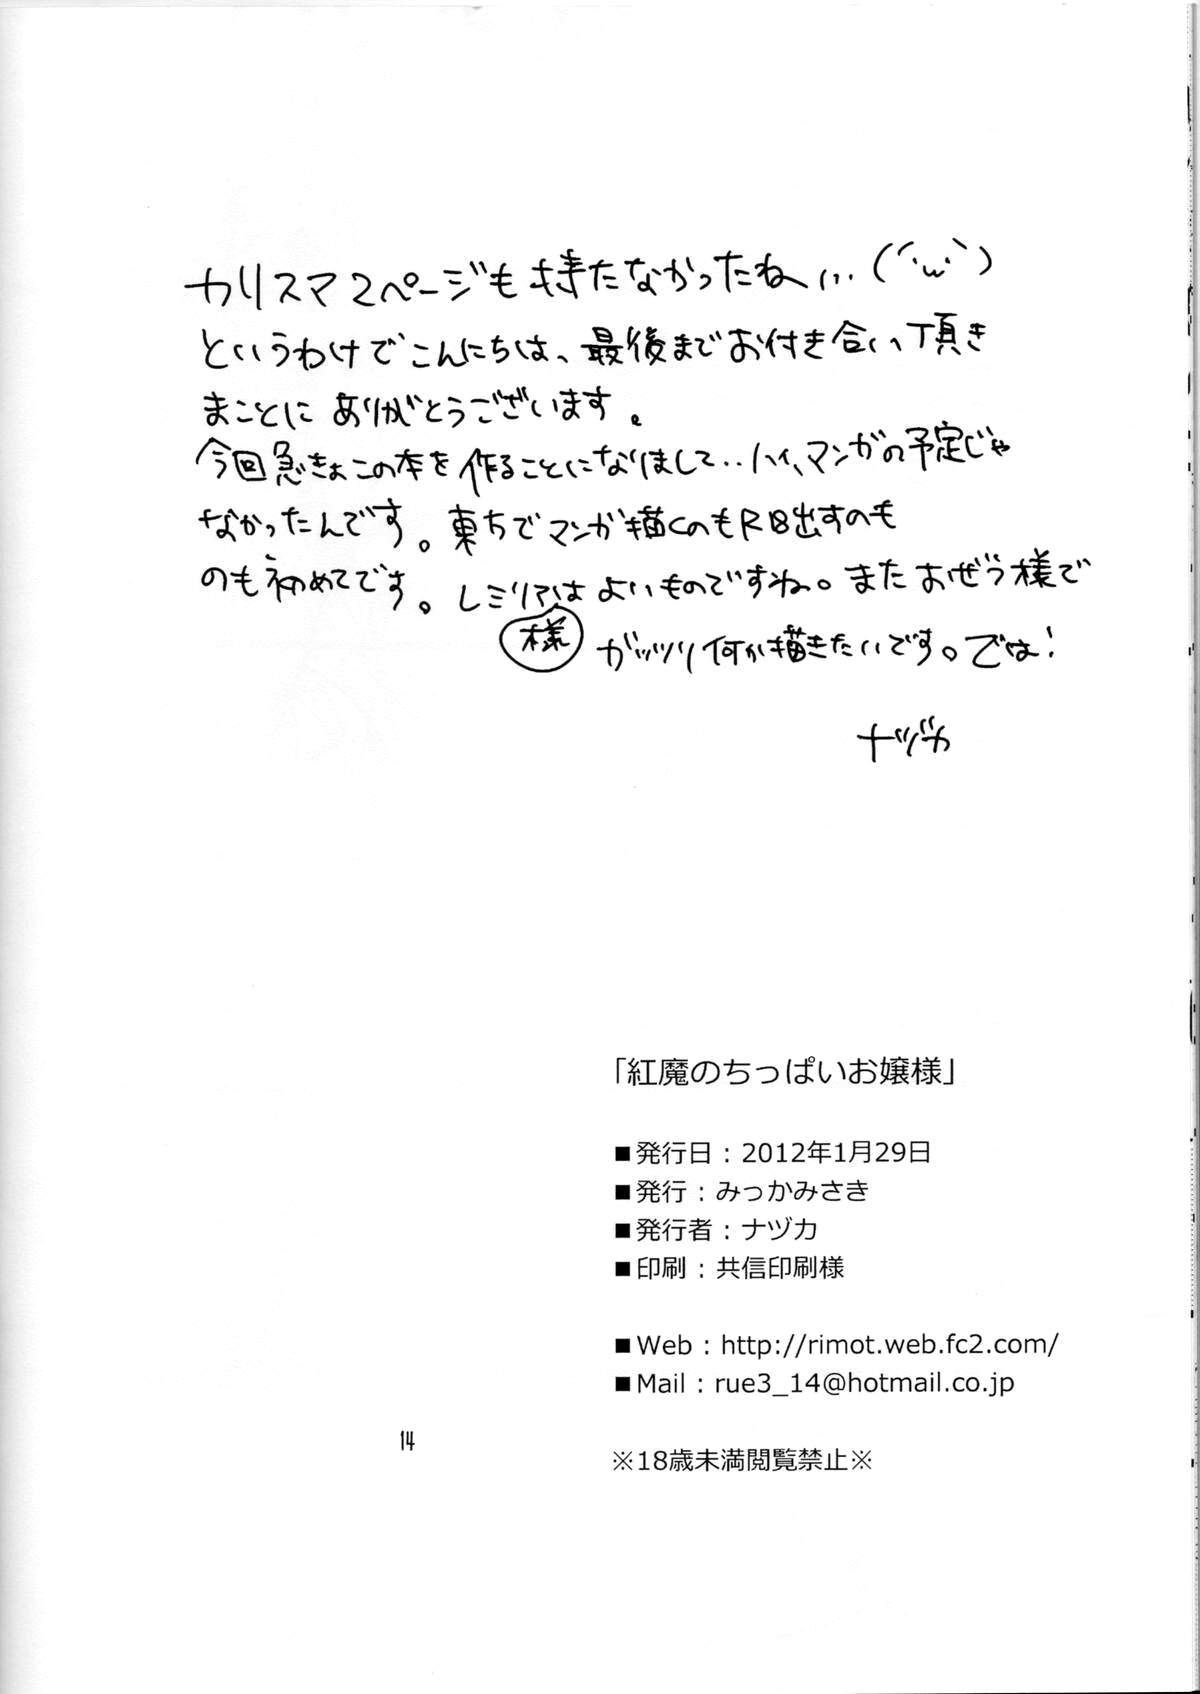 カリスマ2ページも持たなかったねぃ..(´･ω･`)
というわけでこんにちは、最後までお付き合い頂き
まことにありがとうございます。
今回急きょこの本を作ることになりまして‥ハイ、マンガの予定じゃ
なかったんです。東方でマンガ描くのもR18出すのも
のも初めてです。レミリアはよいものですね。またおぜう様で
様
ガッツリ何か描きたいです。では!
ナヅカ
「紅魔のちっぱいお嬢様」
■発行日：2012年1月29日
■発行：みっかみさき
■発行者：ナヅカ
■印刷：共信印刷様
■Web：http://rimot.web.fc2.com/
■Mail：rue3_14@hotmail.co.jp
14
※18歳未満閲覧禁止※